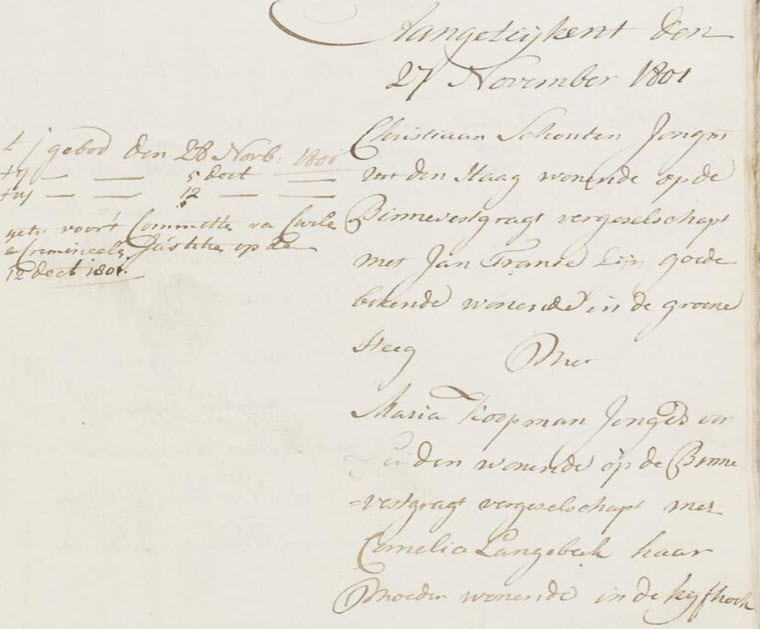 Aangeteijkent den
27 November 1801
t j gebod den 28 Novb: 1801
ty — — 5 dect —
tuj — — 12 —
getr voor't Committe va Civile
e Crimineele Justitie op de
12 dect 1801.
Christiaan Schouten Jongm
uit den Haag wonende op de
Binnevestgragt vergeselschapt
met Jan Franse Zijn goede
bekende wonende in de groene
steeg Met
Maria Koopman Jonged van
Leiden wonende op de Binne
=vestgragt vergeselschapt met
Cornelia Langebeek haar
Moeder wonende in de kijfhoek